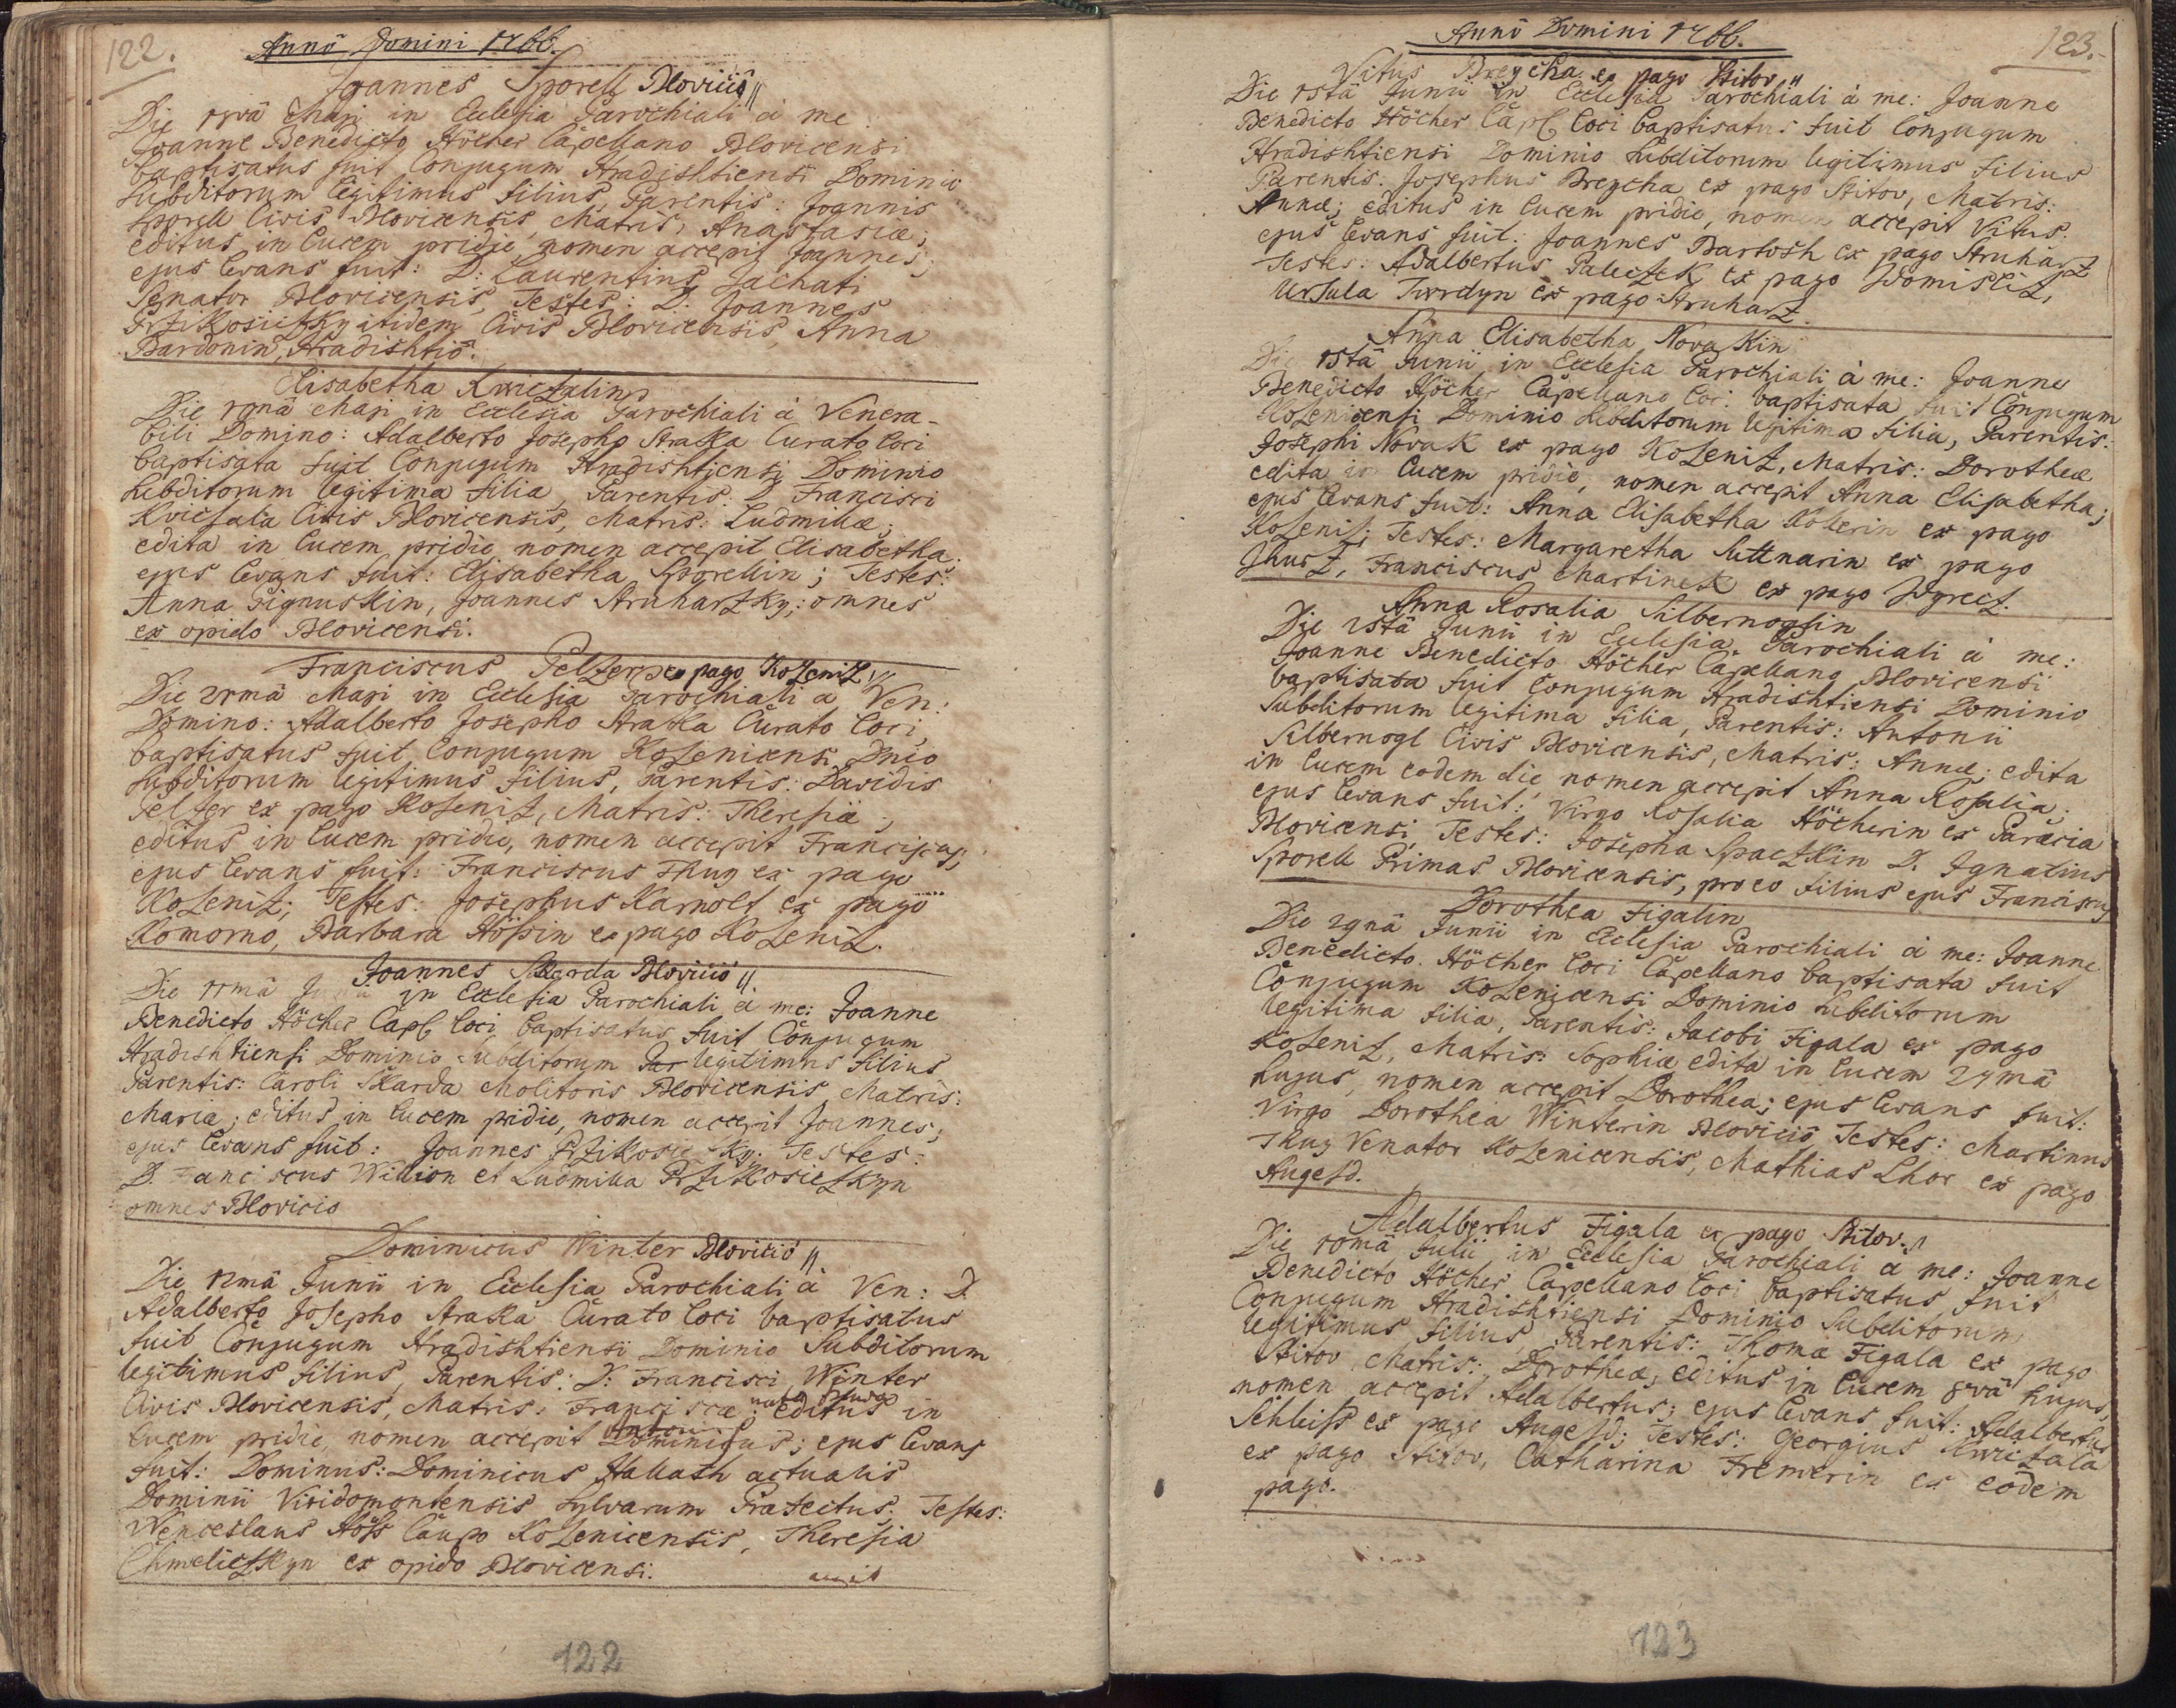 122.
Annô Domini 1766.
Joannes Sporell Blovitiô
Die 17vâ Maji in Ecclesia Parochiali à me
Joanne Benedicto Höcher Capellano Blovicensi
baptisatus fuit Conjugum Hradishtiensi Dominio
Subditorum legitimus filius, Parentis: Joannis
Sporell Civis Blovicensis, Matris: Anastasiæ;
editus in lucem pridie nomen accepit Joannes;
ejus levans fuit: D: Laurentius Zachati
Senator Blovicensis, Testes: D. Joannes
Przikosiczky itidem Civis Blovicensis, Anna
Bardonin, Hradishtiô.
Elisabetha Kwiczalin
Die 19nâ Maji in Ecclesia Parochiali à Venera-
bili Domino: Adalberto Josepho Straka Curato loci
baptisata fuit Conjugum Hradishtiensi Dominio
Subditorum legitima filia, Parentis: D. Francisci
Kvicsala Civis Blovicensis, Matris: Ludmillæ;
edita in lucem pridie nomen accepit Elisabetha;
ejus levans fuit: Elisabetha Sporellin; Testes:
Anna Pignuskin, Joannes Struharzky; omnes
ex opido Blovicensi.
Franciscus Pelzer ex pago Kozenitz
Die 21mâ Maji in Ecclesia Parochiali a Ven:
Domino: Adalberto Josepho Straka Curato loci
baptisatus fuit Conjugum Kozenicensi Dnio
Subditorum legitimus filius, Parentis: Davidis
Pelzer ex pago Kozenitz, Matris: Theresiæ;
editus in lucem pridie, nomen accepit Franciscus;
ejus levans fuit: Franciscus Thuy ex pago
Kozenitz; Testes: Josephus Karnolt ex pago
Komorno, Barbara Hössin ex pago Kozenitz.
Joannes Skarda Blovitiô
Die 11mâ Junii in Ecclesia Parochiali à me: Joanne
Benedicto Höcher Capl loci baptisatus fuit Conjugum
Hradishtiensi Dominio Subditorum Par legitimus filius
Parentis: Caroli Skarda Molitoris Blovicensis Matris:
Maria; editus in lucem pridie, nomen accepit Joannes;
ejus levans fuit: Joannes Przikosiczky; Testes:
D. Franciscus Willion et Ludmilla Przikosiczkyn
omnes Blovicio
Dominicus Winter Blovitiô
Die 12mâ Junii in Ecclesia Parochiali à Ven: D.
Adalberto Josepho Straka Curato loci baptisatus
fuit Conjugum Hradishtiensi Dominio Subditorum
legitimus filius, Parentis: D: Francisci Winter
Civis Blovicensis, Matris: Franciscæ; editus in
lucem pridie, nomen accepit Dominicus; ejus levans
fuit: Dominus: Dominicus Hallath actualis
Dominii Viridomontensis Sylvarum Præfectus, Testes:
Wenceslaus Höss Caupo Kozenicensis, Theresia
Chmeliczkyn ex opido Blovicensi.
122
Annô Domini 1766.
123.
Vitus Brejcha ex pago Stitov
Die 15tâ Junii in Ecclesia Parochiali à me: Joanne
Benedicto Höcher Capl loci baptisatus fuit Conjugum
Hradishtiensi Dominio Subditorum legitimus filius
Parentis: Josephus Brejcha ex pago Stitov, Matris:
Annæ; editus in lucem pridie, nomen accepit Vitus:
ejus levans fuit: Joannes Bartosh ex pago Struharz
Testes: Adalbertus Paleczek ex pago Zdomislitz,
Ursula Twrdyn ex pago Struharz.
Anna Elisabetha Novakin
Die 15tâ Junii in Ecclesia Parochiali à me: Joanne
Benedicto Höcher Capellano loci baptisata fuit Conjugum
Kozenicensi Dominio Subditorum legitima filia, Parentis:
Josephi Novak ex pago Kozenitz, Matris: Dorotheæ
edita in lucem pridie, nomen accepit Anna Elisabetha;
ejus levans fuit: Anna Elisabetha Kozerin ex pago
Kozenitz; Testes: Margaretha Suttnarin ex pago
Zhurz, Franciscus Martinek ex pago Zdyrecz.
Anna Rosalia Silbernoglin
Die 21stâ Junii in Ecclesia Parochiali à me:
Joanne Benedicto Höcher Capellano Blovicensi
baptisata fuit Conjugum Hradishtiensi Dominio
Subditorum legitima filia, Parentis: Antonii
Silbernogl Civis Blovicensis, Matris: Annæ; edita
in lucem eodem die nomen accepit Anna Rosalia;
ejus levans fuit: Virgo Rosalia Höcherin ex Paræcia
Blovicensi, Testes: Josepha Spaczkin D. Ignatius
Sporell Primas Blovicensis, pro eo filius ejus Franciscus
Dorothea Figalin
Die 29nâ Junii in Ecclesia Parochiali à me: Joanne
Benedicto Höcher loci Capellano baptisata fuit
Conjugum Kozenicensi Dominio Subditorum
legitima filia, Parentis: Jacobi Figala ex pago
Kozenitz, Matris: Sophiæ edita in lucem 27mâ
hujus, nomen accepit Dorothea; ejus levans fuit:
Virgo Dorothea Winterin Bloviciô Testes: Martinus
Thuy Venator Kozenicensis, Mathias Lhor ex pago
Augezd.
Adalbertus Figala ex pago Stitov
Die 10mâ Julii in Ecclesia Parochiali a me: Joanne
Benedicto Höcher Capellano loci baptisatus fuit
Conjugum Hradishtiensi Dominio Subditorum
legitimus filius, Parentis: Thomæ Figala ex pago
Stitov, Matris: Dorotheæ; editus in lucem 8vâ hujus,
nomen accepit Adalbertus; ejus levans fuit: Adalbertus
Schleiss ex pago Augezd; Testes: Georgius Kwiczala
ex pago Stitov, Catharina Fremerin ex eodem
pago.
123